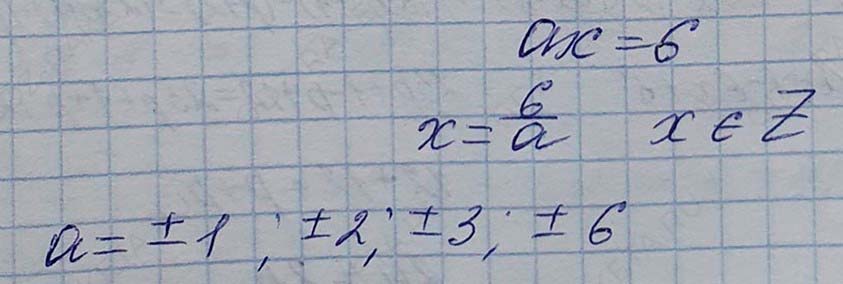 ax = 6
x = 6/a   x ∈ Z
a = ± 1 ; ± 2 ; ± 3 ; ± 6